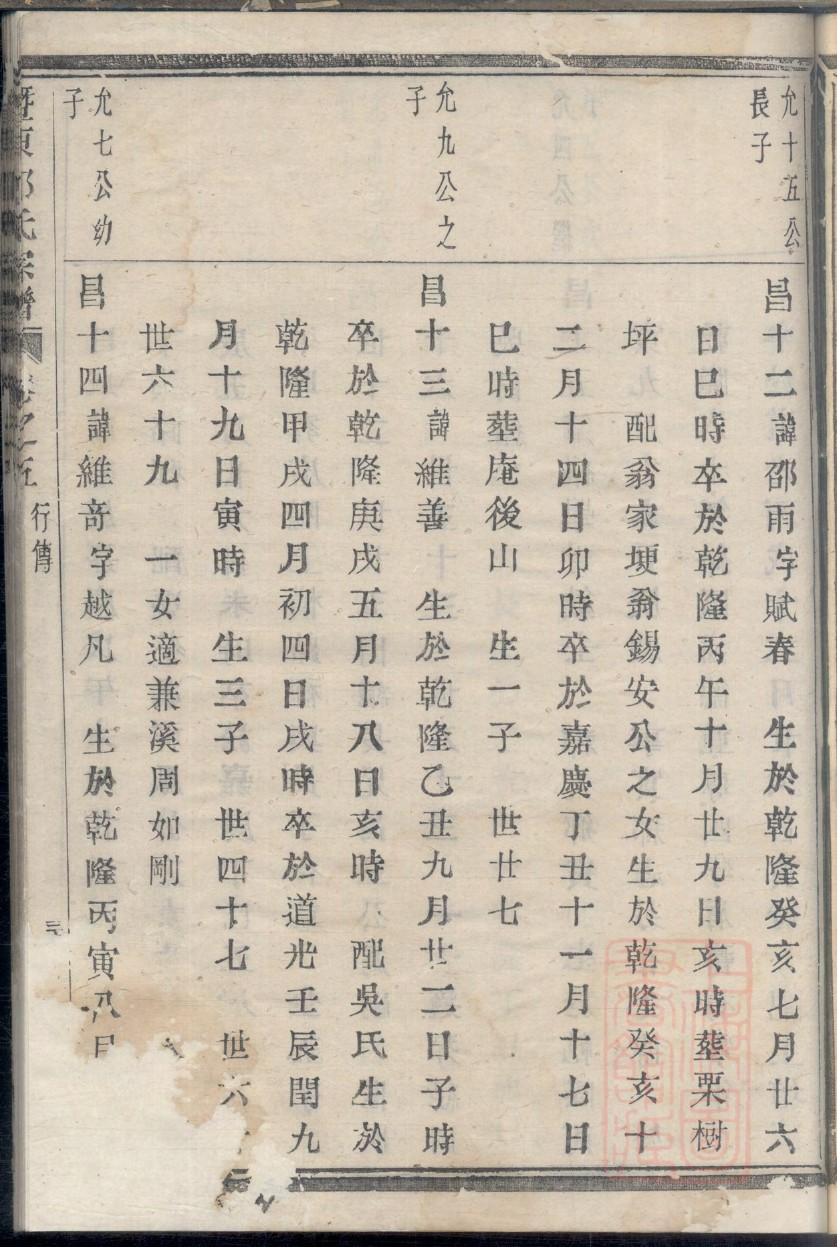 允十五公
長子
昌十二諱邵雨字賦春　生於乾隆癸亥七月廿六
日巳時卒於乾隆丙午十月廿九日亥時塟栗樹
坪　配翁家埂翁錫安公之女生於乾隆癸亥十
二月十四日卯時卒於嘉慶丁丑十一月十七日
巳時塟庵後山　生一子　世廿七
允九公之
子
昌十三諱維善　生於乾隆乙丑九月廿二日子時
卒於乾隆庚戌五月十八日亥時　配吳氏生於
乾隆甲戌四月初四日戌時卒於道光壬辰閏九
月十九日寅時　生三子　世四十七　世六十
世六十九　一女適兼溪周如剛
允七公幼
子
昌十四諱維奇字越凡　生於乾隆丙寅八月
氏宗譜　卷之五　行傳